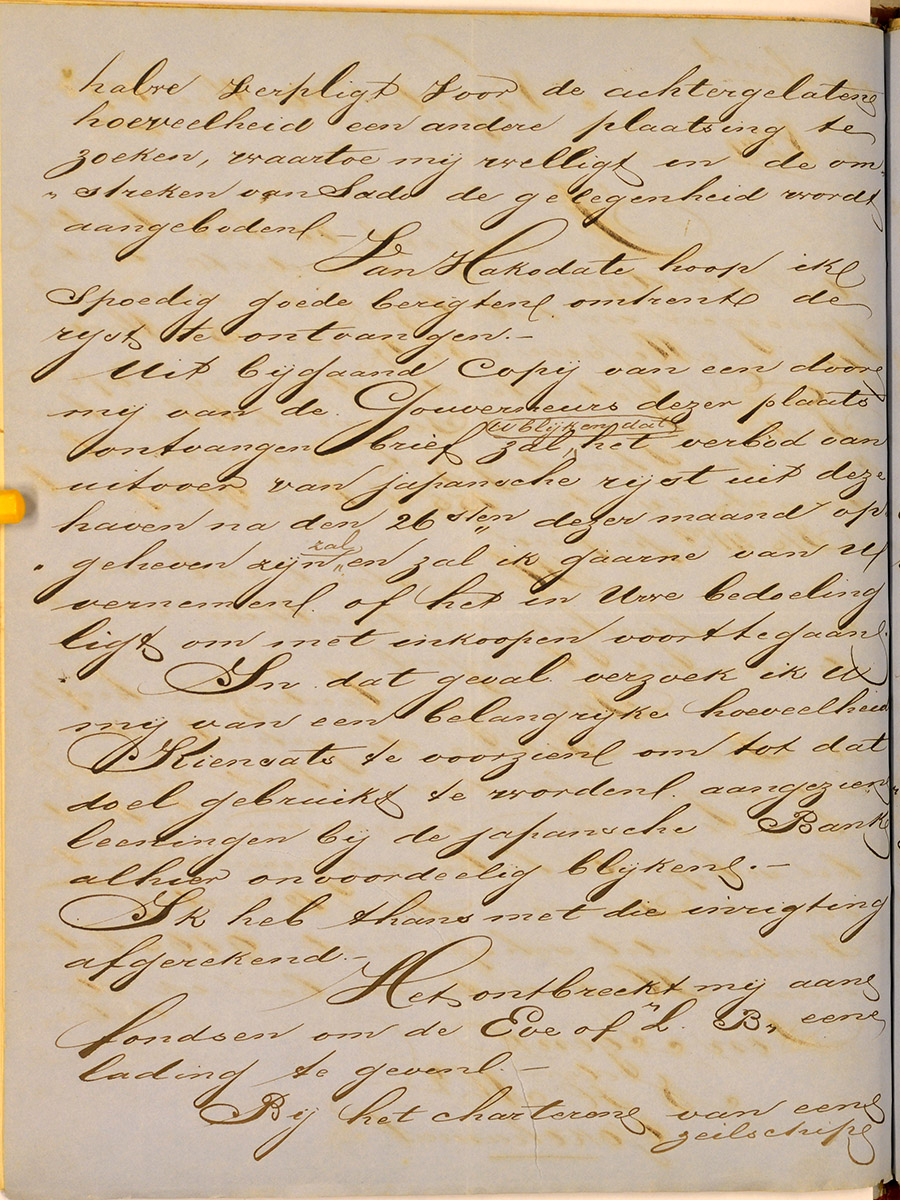 halve verpligt voor de achtergelatene
hoeveelheid een andere plaatsing te
zoeken, waartoe mij welligt in de om-
„streken van Sado de gelegenheid wordt
aangeboden. —
Van Hakodate hoop ik
spoedig goede berigten omtrent de
ryst te ontvangen. —
Uit bijgaand Copij van een door
mij van de Gouverneurs dezer plaats
U blijken dat
ontvangen brief zal, het verbod van
uitvoer van japansche ryst uit deze
haven na den 26sten dezer maand op
zal
geheven zijn „ en zal ik gaarne van U
vernemen of het in Uwe bedoeling
ligt om met inkoopen voorttegaan.
In dat geval verzoek ik U
mij van een belangrijke hoeveelheid
Kiensats te voorzien om tot dat
doel gebruikt te worden. aangezien
leeningen bij de japansche Bank
alhier onvoordeelig blijken. —
Ik heb thans met die inrigting
afgerekend. —
Het ontbreekt mij aan
fondsen om de Eve of „L. B„ eene
lading te geven. —
Bij het charteren van een
zeilschip